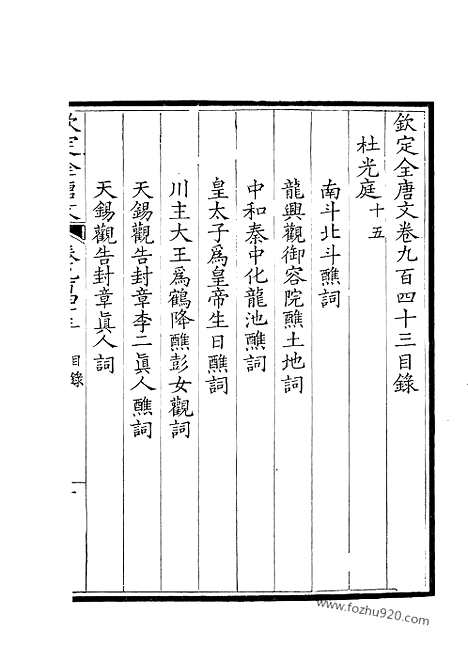 欽定全唐文卷九百四十三目錄
杜光庭十五
南斗北斗醮詞
龍興觀御容院醮土地詞
中和秦中化龍池醮詞
皇太子爲皇帝生日醮詞
川主大王爲鶴降醮彭女觀詞
天錫觀告封章李二眞人醮詞
天錫觀告封章眞人詞
欽定全唐文 目錄
www.fozhu920.com